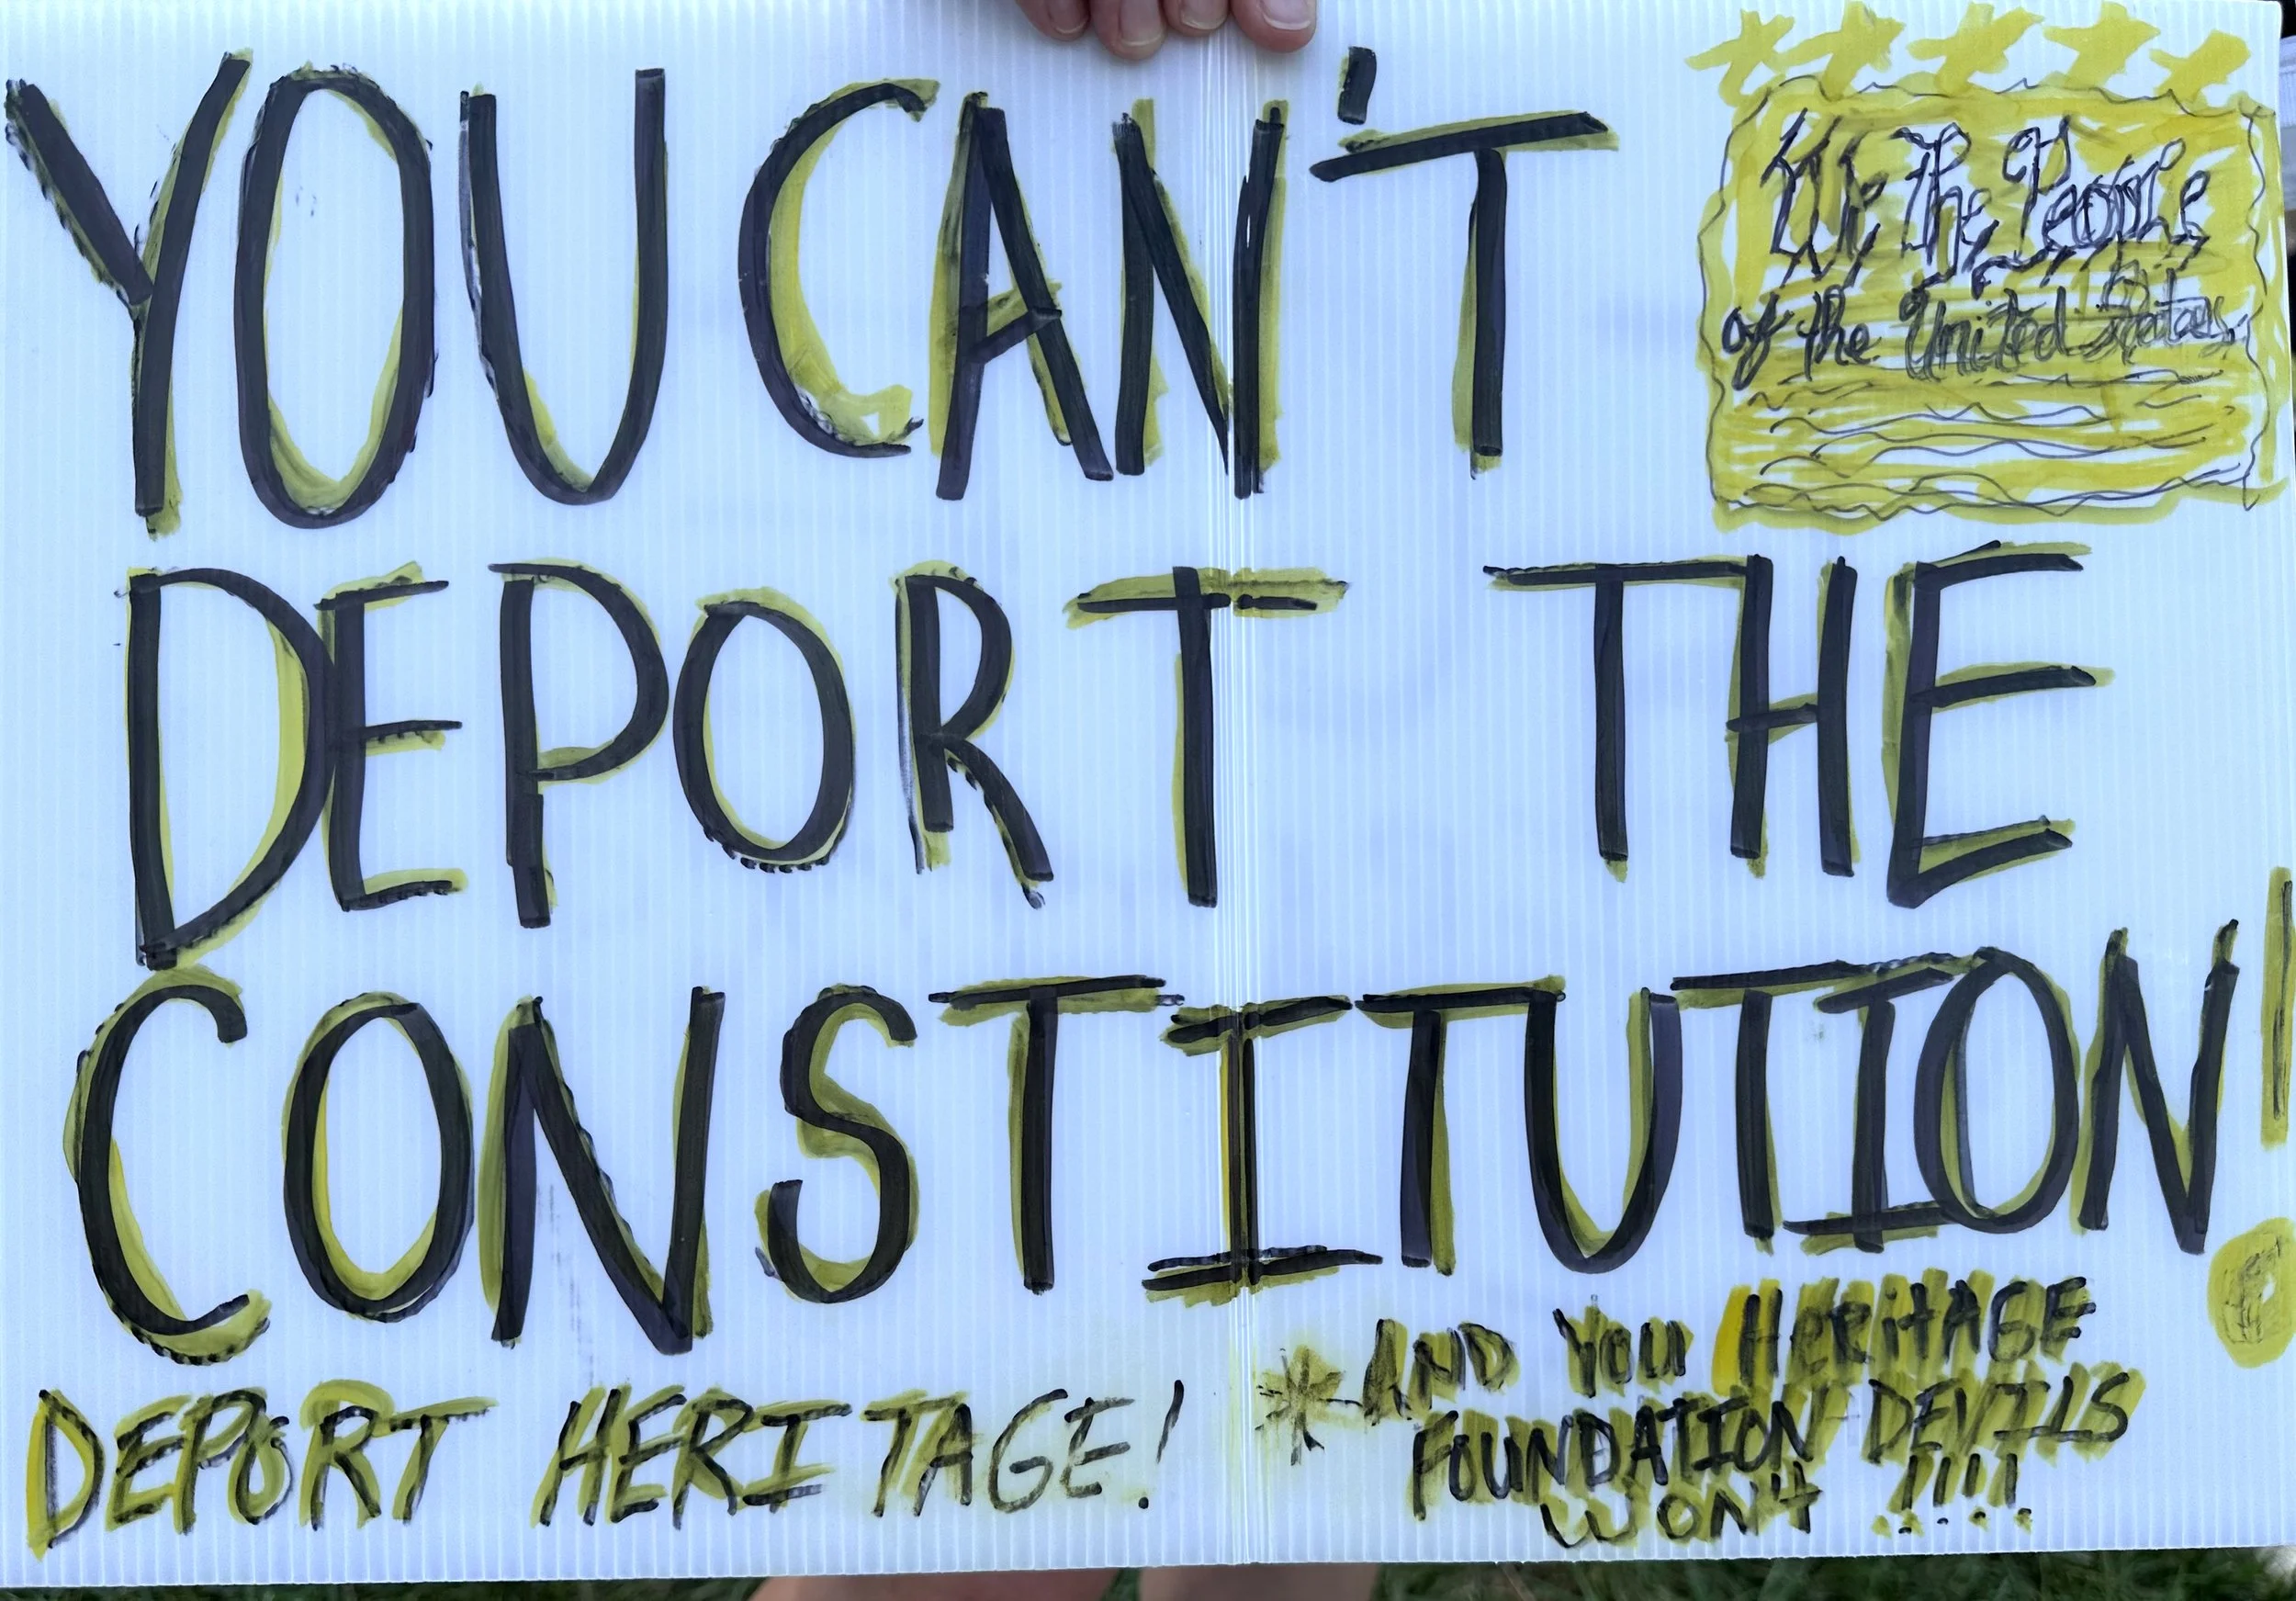 YOU CAN'T
We the People
of the United States
DEPORT THE
CONSTITUTION!
DEPORT HERITAGE!
*AND YOU HERITAGE
FOUNDATION DEVILS
WON'T !!!!